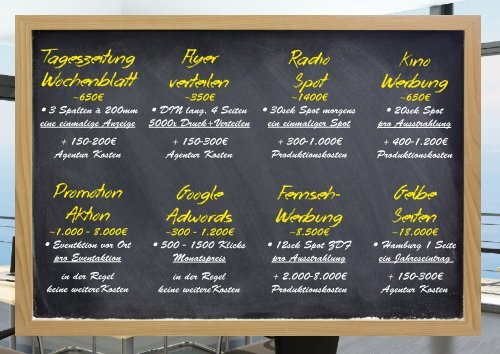 Tageszeitung
Wochenblatt
~650€
• 3 Spalten à 200mm
eine einmalige Anzeige
+ 150-200€
Agentur Kosten
Flyer
verteilen
~350€
• DIN lang, 4 Seiten
5000x Druck+Verteilen
+ 150-300€
Agentur Kosten
Radio
Spot
~1400€
• 30sek Spot morgens
ein einmaliger Spot
+ 300-1.000€
Produktionskosten
Kino
Werbung
~650€
• 20sek Spot
pro Ausstrahlung
+ 400-1.200€
Produktionskosten
Promotion
Aktion
~1.000 - 8.000€
• Eventktion vor Ort
pro Eventaktion
in der Regel
keine weitere Kosten
Google
Adwords
~300 - 1.200€
• 500 - 1500 Klicks
Monatspreis
in der Regel
keine weitere Kosten
Fernseh-
Werbung
~8.500€
• 12sek Spot ZDF
pro Ausstrahlung
+ 2.000-8.000€
Produktionskosten
Gelbe
Seiten
~18.000€
• Hamburg 1 Seite
ein Jahreseintrag
+ 150-300€
Agentur Kosten